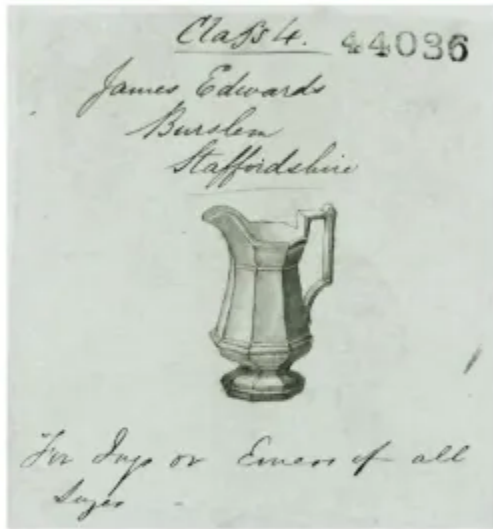 Class 4. 44036
James Edwards
Burslem
Staffordshire
For Jugs or Ewers of all
Sizes